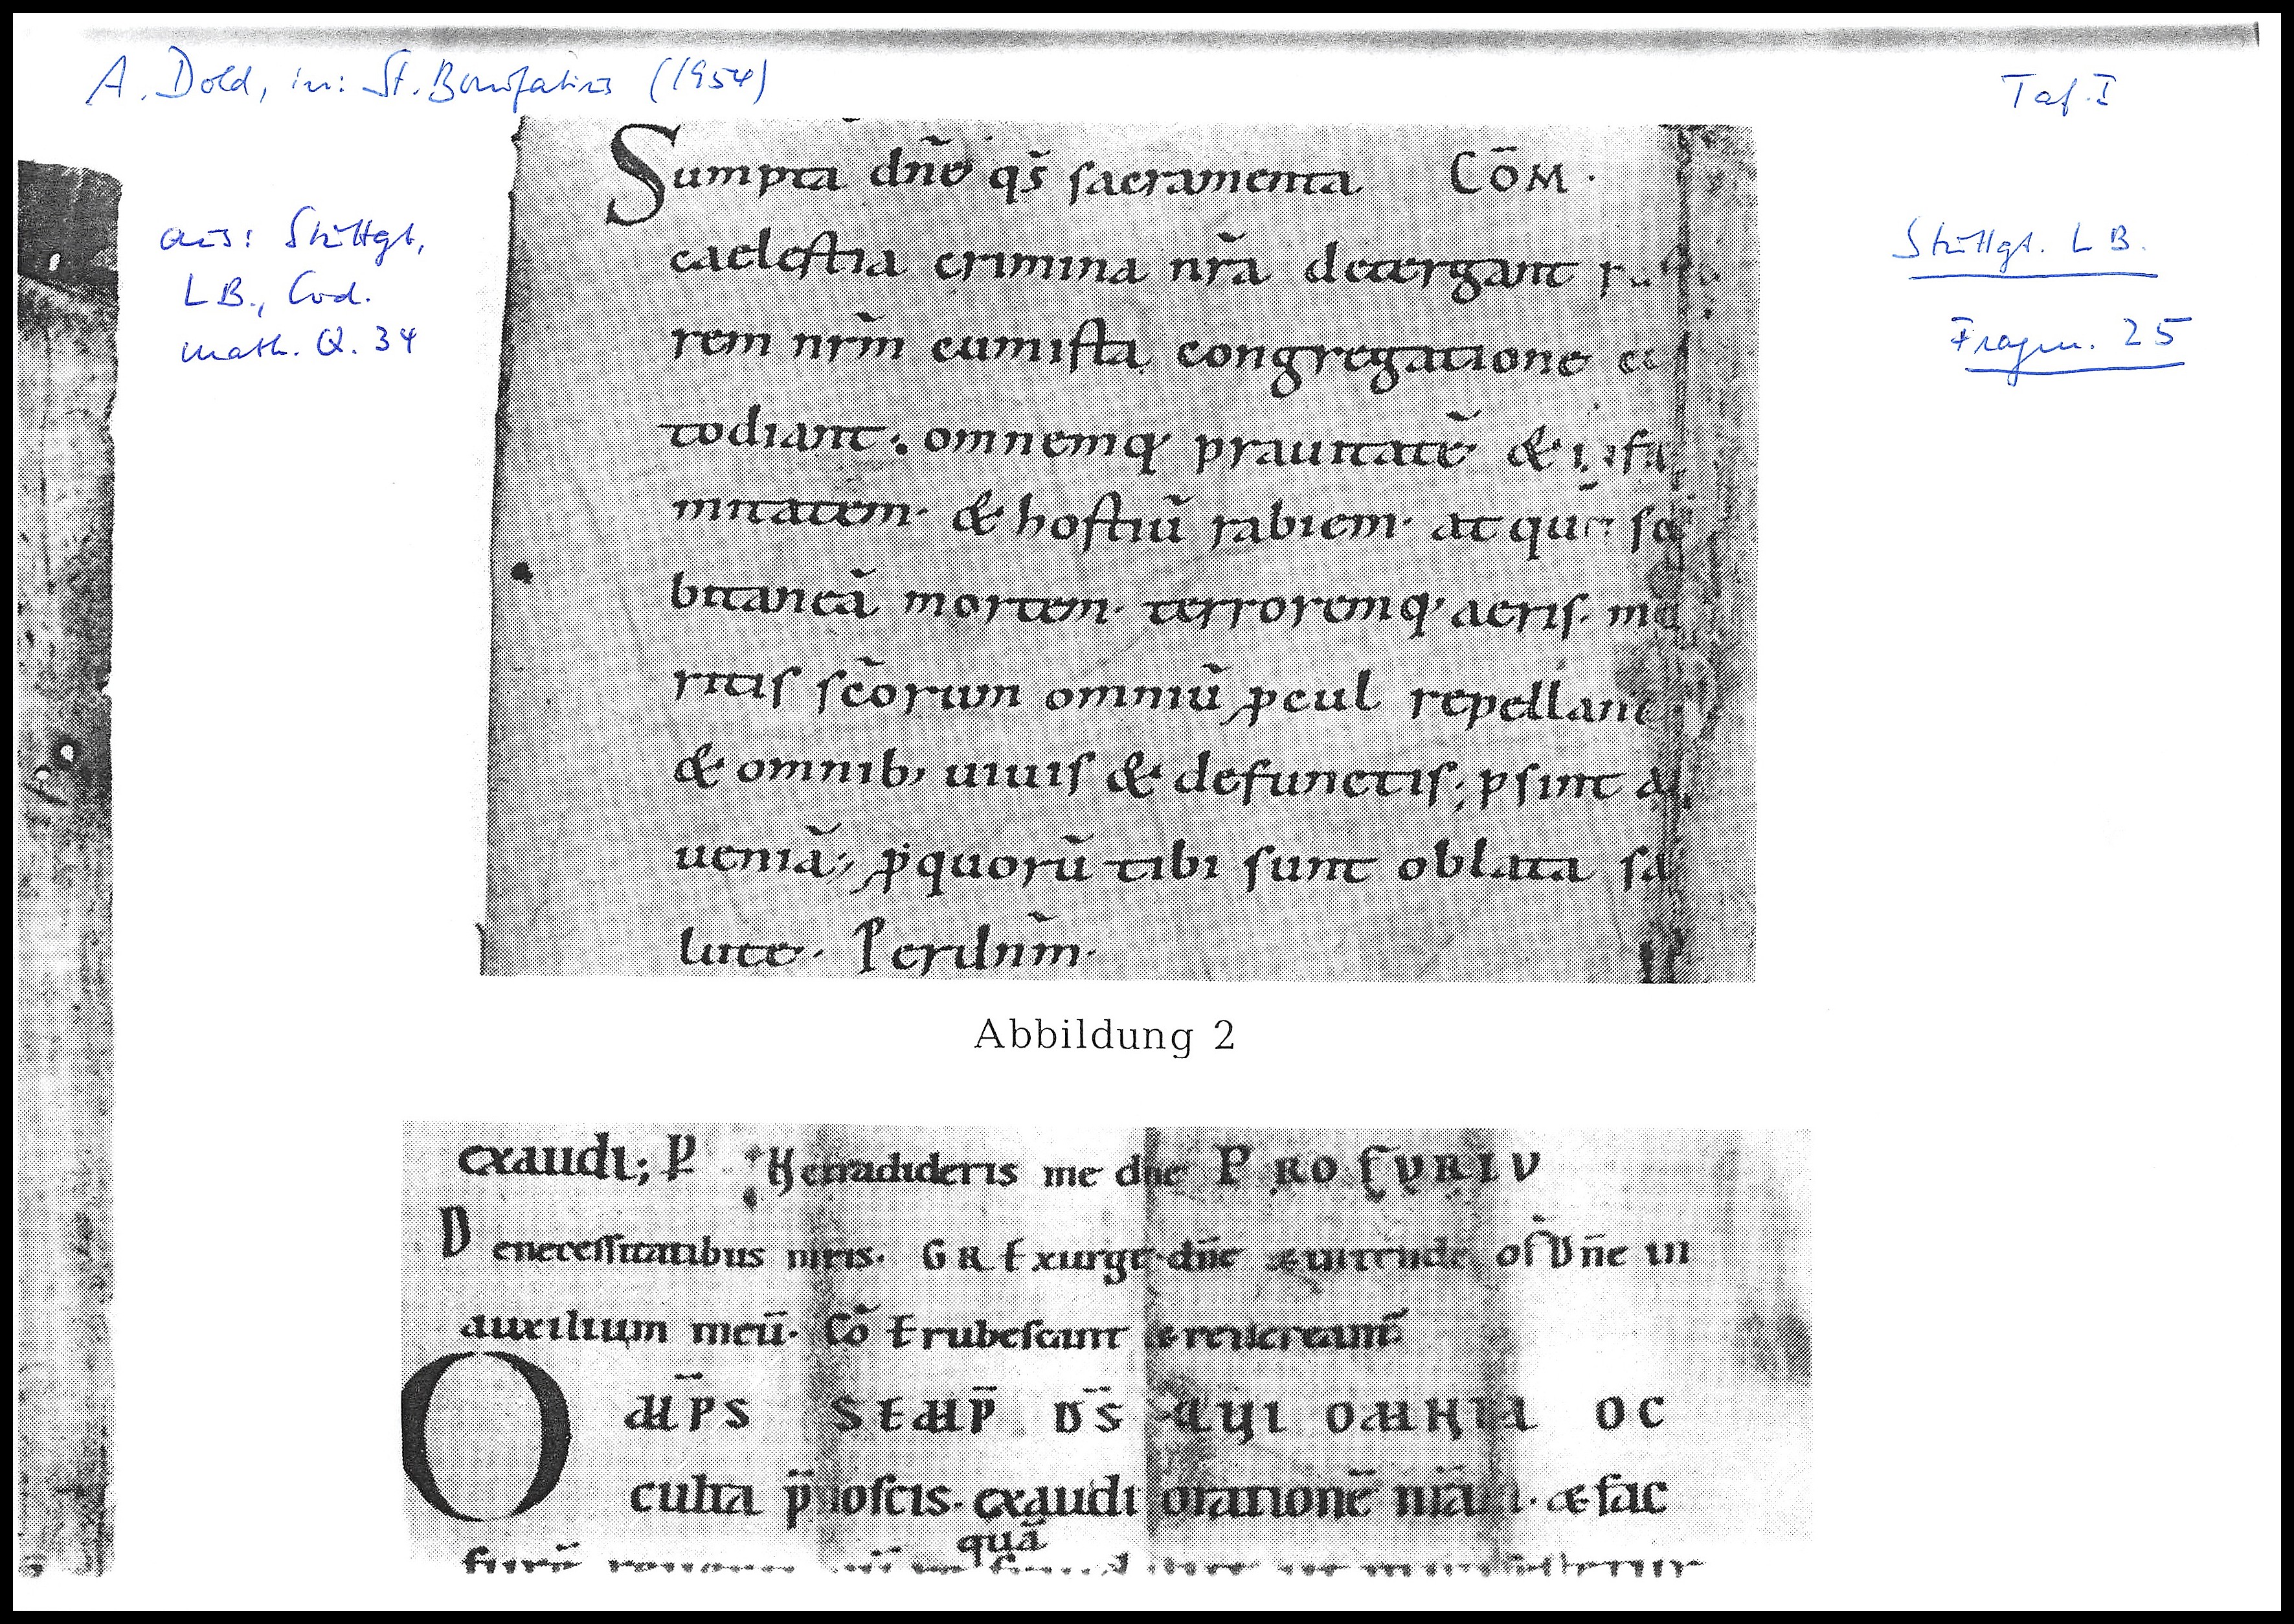 A. Dold, in: St. Bonifatius (1954)
Taf. I
aus: Stuttgt,
LB., Cod.
math. Q. 34
Stuttgt. LB.
Fragm. 25
Sumpta dñe qs̄ sacramenta CŌM ·
caelestia crimina nr̄a detergant
rem nr̄m cumista congregatione
todiant · omnemq prauitatē &
mitatem · & hostiū rabiem · atque
bitaneā mortem · terroremq aeris · me
ritis sc̄orum omniū ꝓcul repellant
& omnib; uiuis & defunctis; psint
ueniā; ꝓquorū tibi sunt oblata sa
lute · Perdnm̄ ·
Abbildung 2
exaudi; P Netradideris me dne PRO CURSU
Denecessitatibus nr̄is · GR Exurge dn̄e & intende of Dn̄e in
auxilium meū · Cō Erubescant & reuereant̄
OMP̄S SEMP̄ DS̄ QUI OMNIA OC
culta p̄noscis · exaudi orationē nr̄ā · & fac
quā